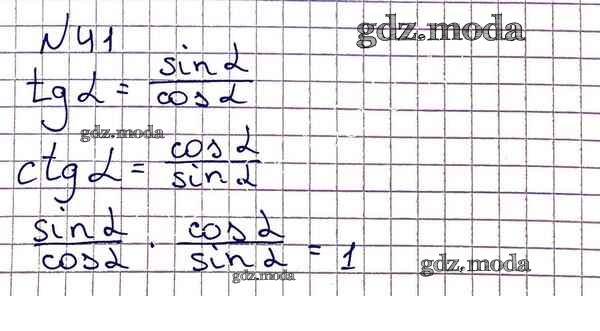 №41
gdz.moda
tg α = sin α / cos α
gdz.moda
ctg α = cos α / sin α
sin α / cos α · cos α / sin α = 1
gdz.moda
gdz.moda